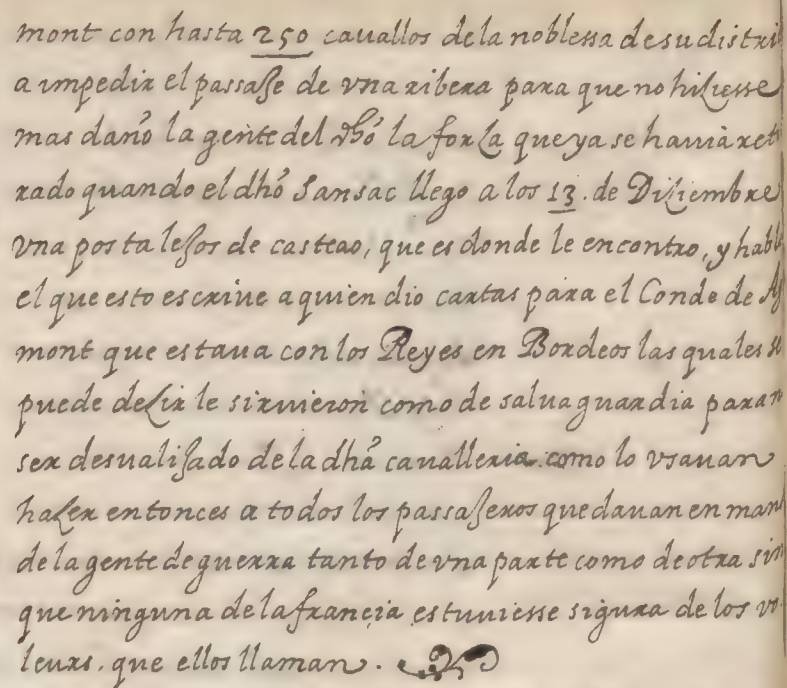 mont con hasta 250 cauallos de la noblessa de su distri
a impedir el passaje de vna ribera para que no hiçiesse
mas daño la gente del dhõ la força que ya se hauia reti
rado quando el dhõ Sansac llego a los 13. de Diçiembre
vna posta lejos de casteao, que es donde le encontro, y hablo
el que esto escriue a quien dio cartas para el Conde de Ag
mont que estaua con los Reyes en Bordeos las quales se
puede deçir le siruieron como de salua guardia para n
ser desualijado de la dhã caualleria como lo vsauan
haçer entonces a todos los passajeros que dauan en man
de la gente de guerra tanto de vna parte como de otra sin
que ninguna de la françia estuuiesse sigura de los vo
leurs. que ellos llaman.